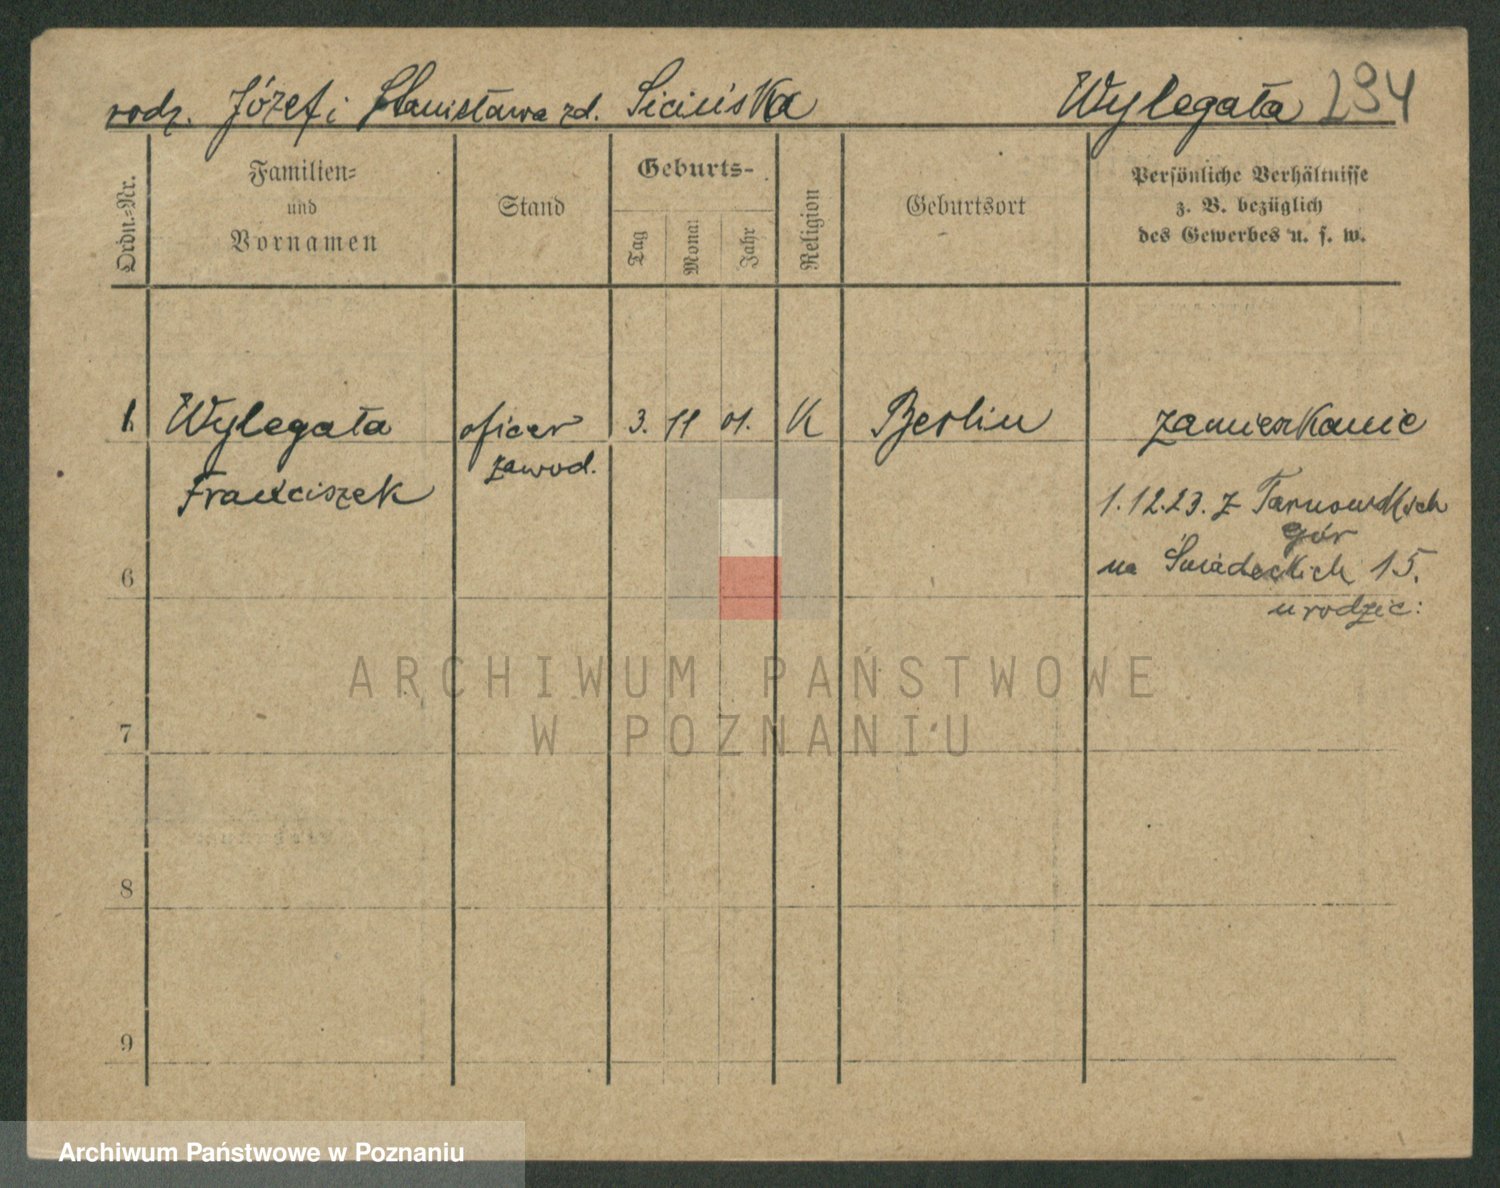 rodz. Józef i Stanisława zd. Sicińska Wylegała 294
Ordn.-Nr.
Familien-
und
Vornamen
Stand
Geburts-
Tag
Monat
Jahr
Religion
Geburtsort
Persönliche Verhältnisse
z. B. bezüglich
des Gewerbes u. s. w.
1. Wylegała oficer 3. 11 01. K Berlin zamieszkanie
Franciszek zawod.
1.12.23. z Tarnowskich
Gór
na Śniadeckich 15.
u rodzic:
6
7
8
9
ARCHIWUM PAŃSTWOWE
W POZNANIU
Archiwum Państwowe w Poznaniu